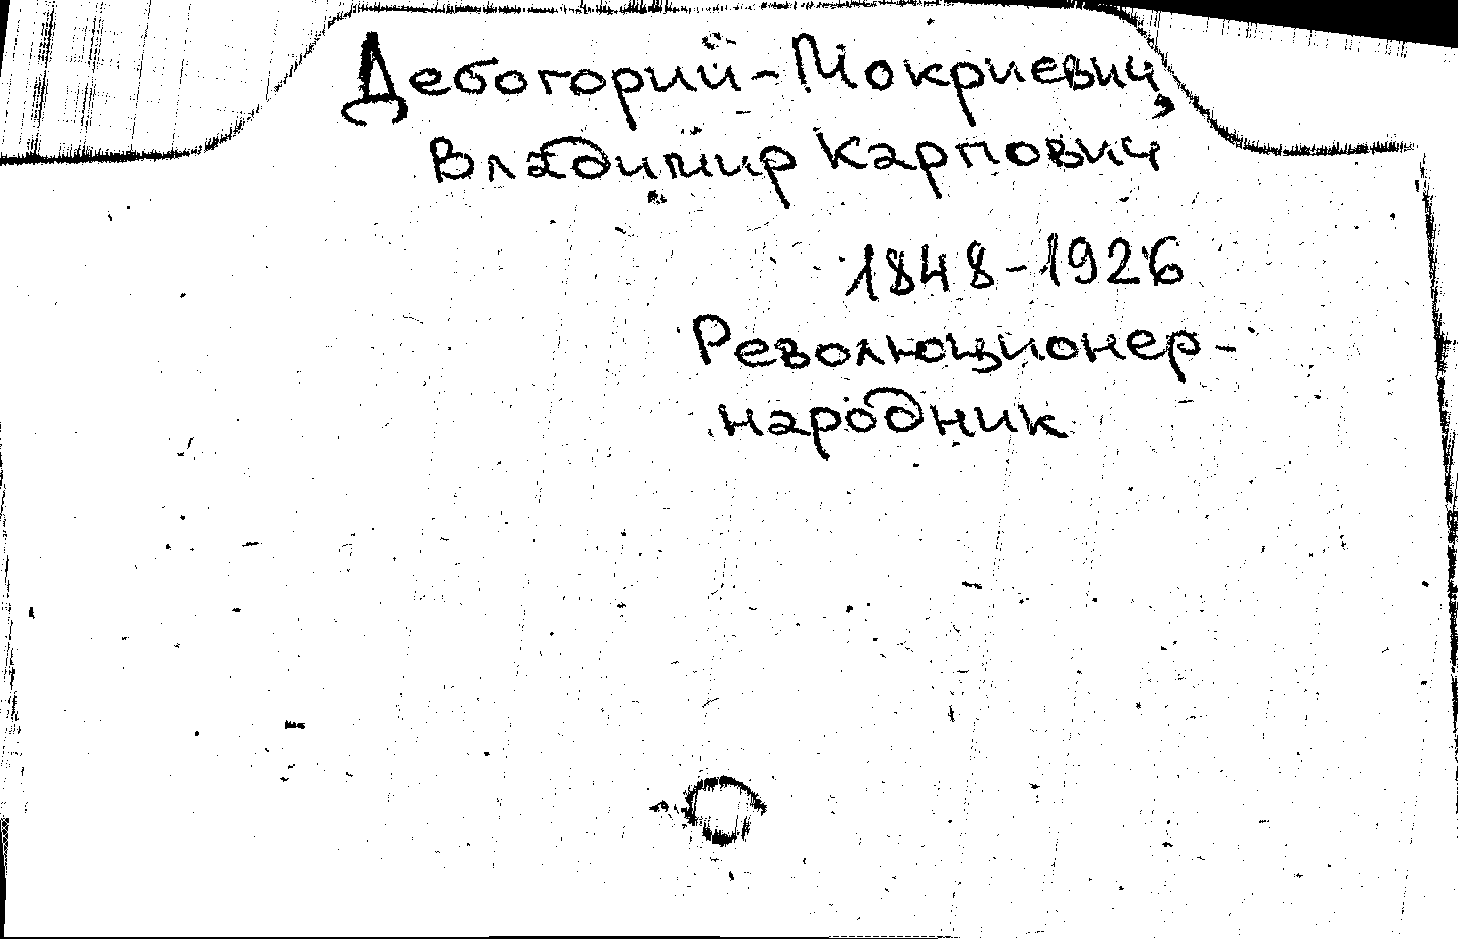 Дебогорий-Мокриевич,
Владимир Карпович
1848-1926
Революционер-
народник